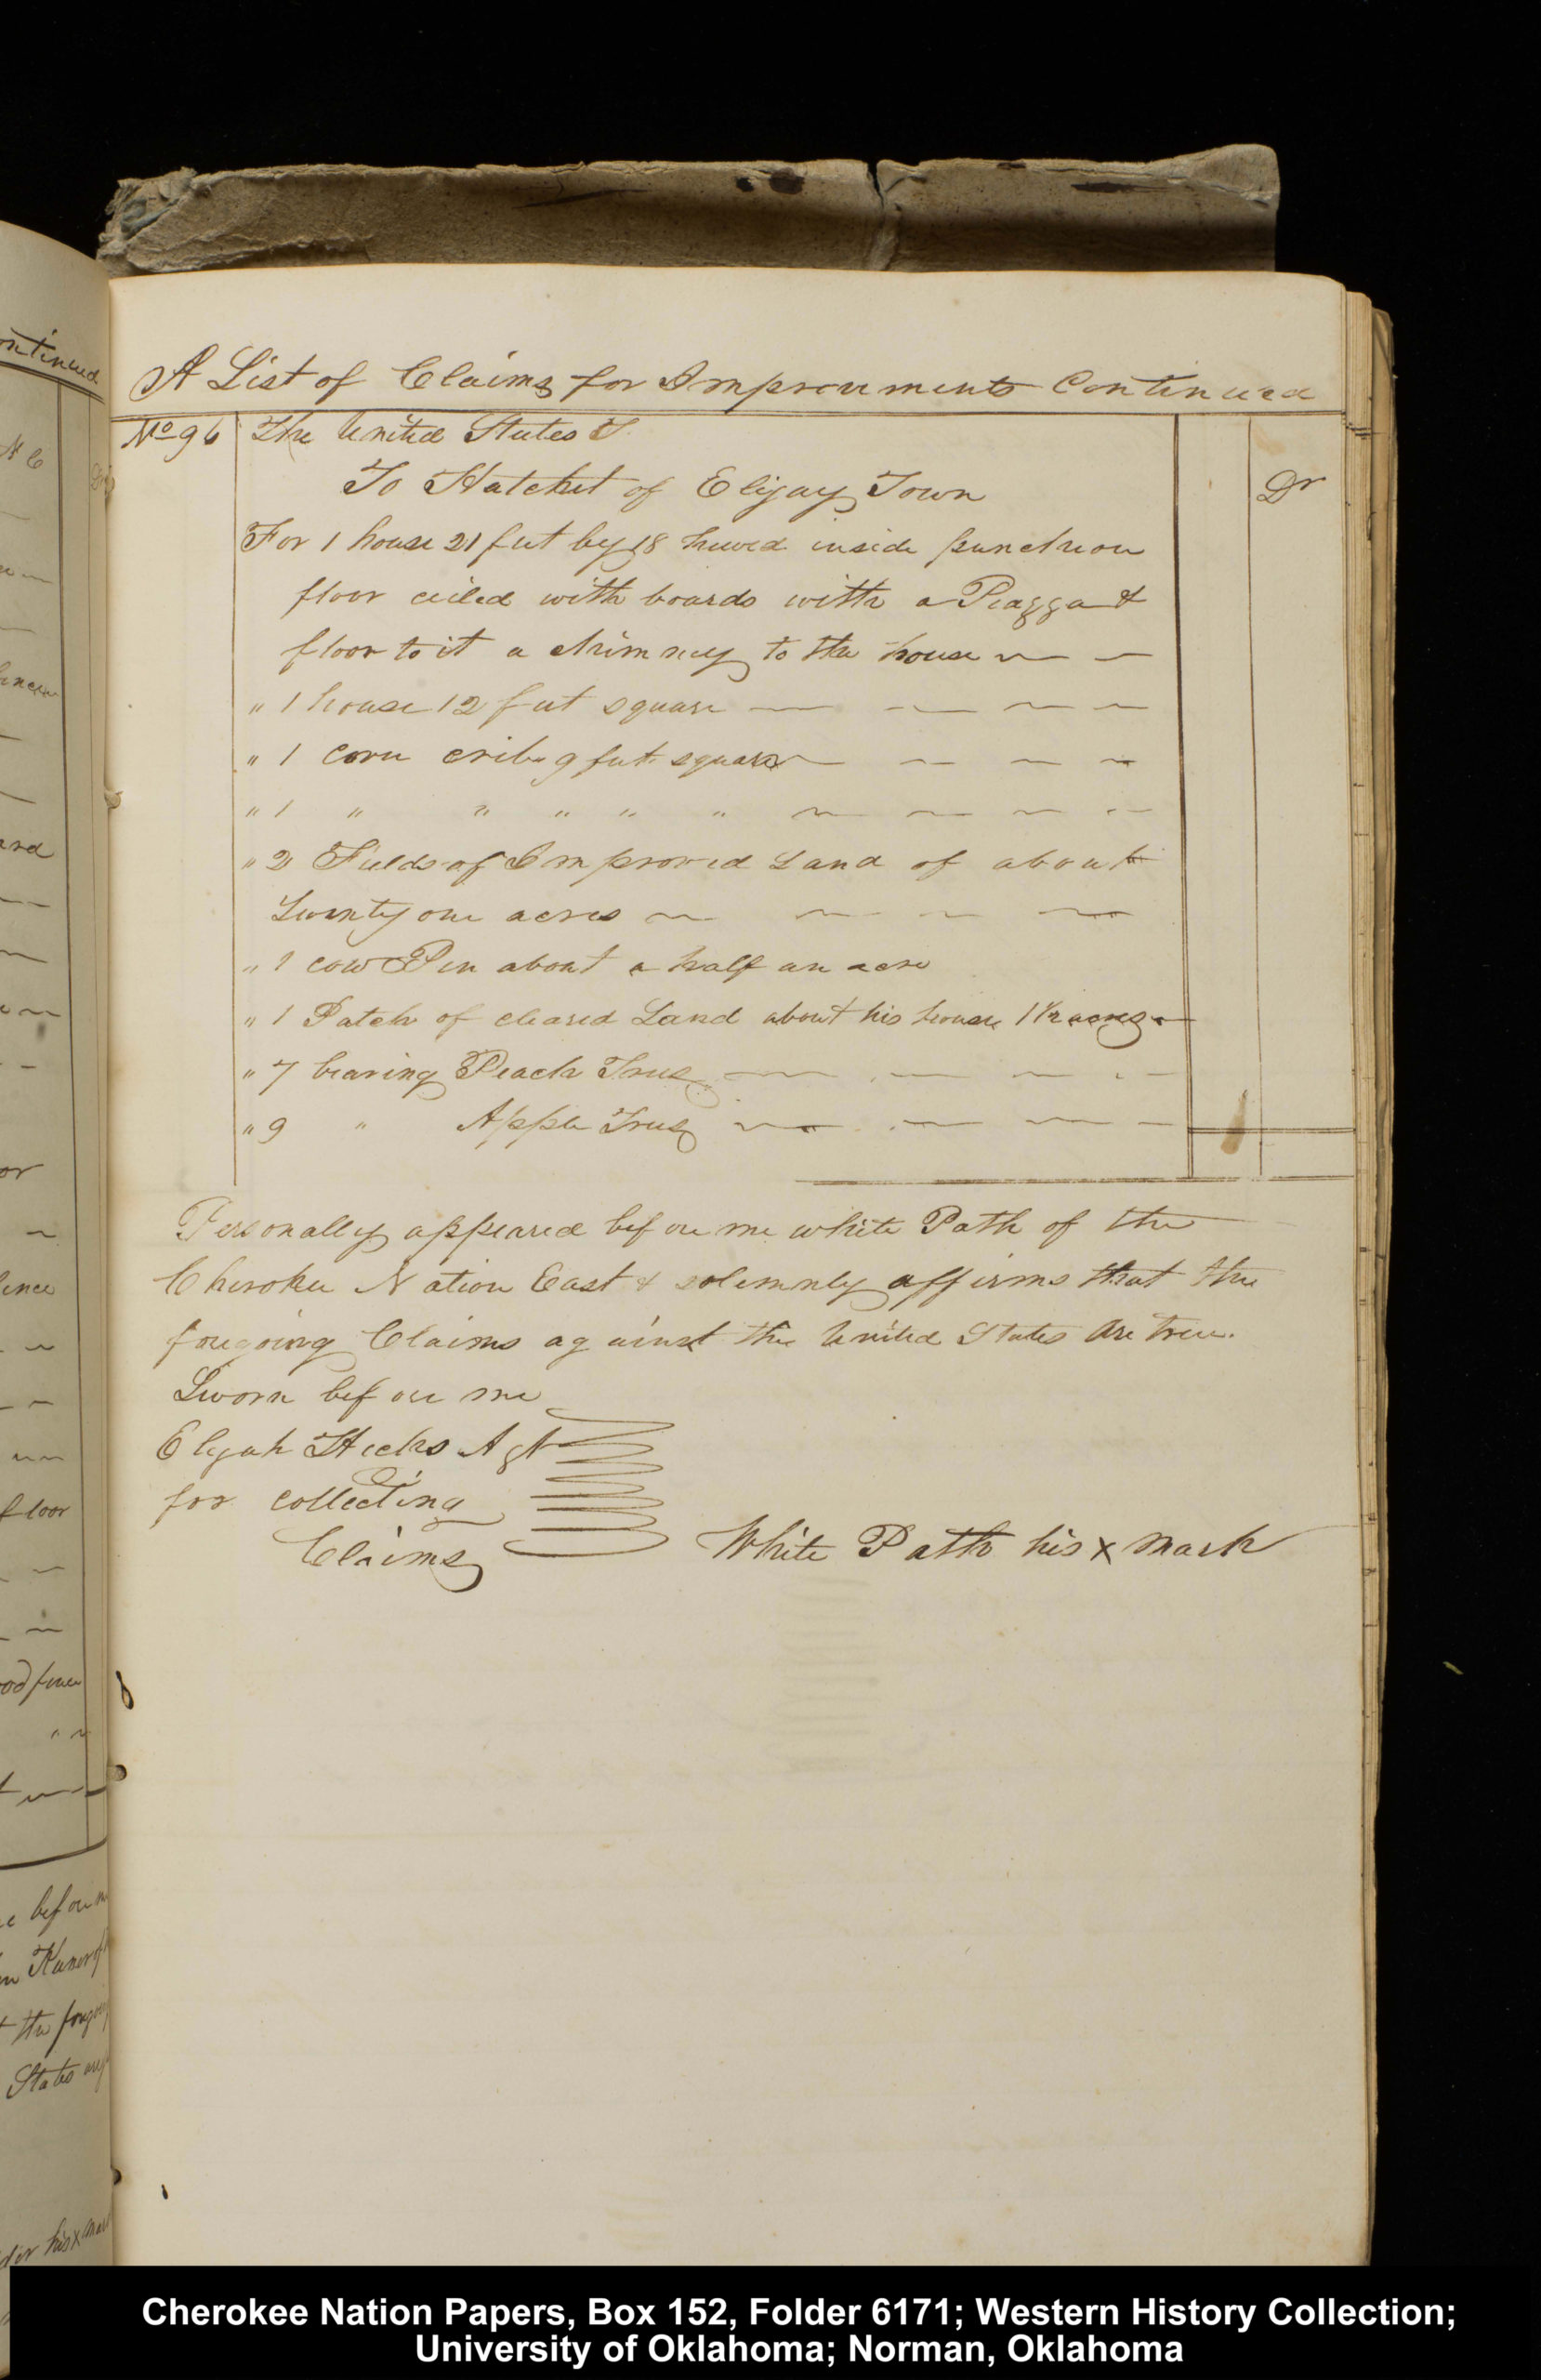 A List of Claims for Improvments Continued
No 96 The United States
To Hatchet of Elijay Town Dr
For 1 house 21 feet by 18 hewed inside puncheon
floor ceiled with boards with a Piazza &
floor to it a chimney to the house
" 1 house 12 feet square
" 1 corn crib 9 feet square
" 1 " " " " "
" 2 Fields of Improved Land of about
Twenty one acres
" 1 cow Pen about a half an acre
" 1 Patch of cleared Land about his house 1 1/2 acres
" 7 bearing Peach Trees
" 9 " Apple Trees
Personally appeared before me white Path of the
Cherokee Nation East & solemnly affirms that the
foregoing Claims against the United States are true.
Sworn before me
Elijah Hicks Agt
for collecting
Claims
White Path his x mark
ontinued
N C
ard
or
ence
floor
od fence
e before m
t the forego
States
der his x mark
Cherokee Nation Papers, Box 152, Folder 6171; Western History Collection;
University of Oklahoma; Norman, Oklahoma